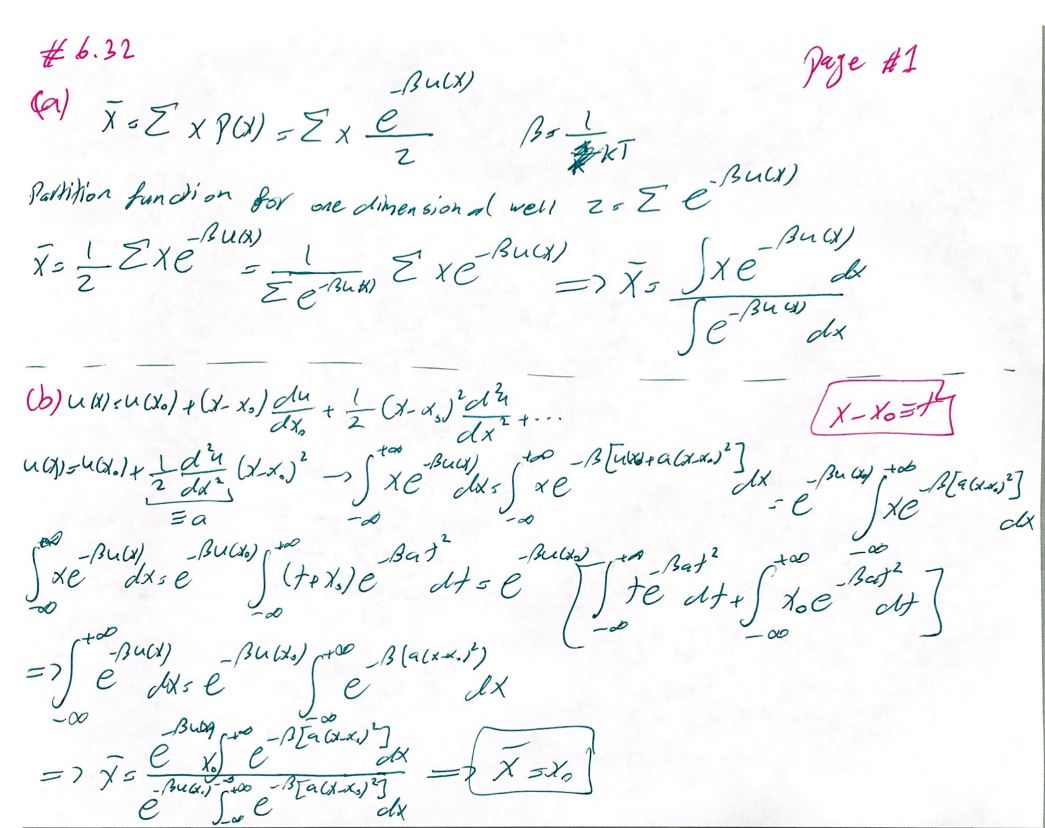 # 6.32 Page #1
(a) x̄ = Σ x P(x) = Σ x e^{-βu(x)} / Z   β = 1/kT
Partition function for one dimensional well Z = Σ e^{-βu(x)}
x̄ = 1/Z Σ x e^{-βu(x)} = 1/(Σ e^{-βu(x)}) Σ x e^{-βu(x)} => x̄ = ∫ x e^{-βu(x)} dx / ∫ e^{-βu(x)} dx
(b) u(x) = u(x₀) + (x-x₀) du/dx₀ + 1/2 (x-x₀)² d²u/dx² + ... x-x₀ ≡ t²
u(x) = u(x₀) + 1/2 d²u/dx² (x-x₀)² → ∫_{-∞}^{+∞} x e^{-βu(x)} dx = ∫_{-∞}^{+∞} x e^{-β[u(x₀)+a(x-x₀)²]} dx = e^{-βu(x₀)} ∫_{-∞}^{+∞} x e^{-β[a(x-x₀)²]} dx
≡ a
∫_{-∞}^{+∞} x e^{-βu(x)} dx = e^{-βu(x₀)} ∫_{-∞}^{+∞} (t+x₀) e^{-βat²} dt = e^{-βu(x₀)} [∫_{-∞}^{+∞} t e^{-βat²} dt + ∫_{-∞}^{+∞} x₀ e^{-βat²} dt]
=> ∫_{-∞}^{+∞} e^{-βu(x)} dx = e^{-βu(x₀)} ∫_{-∞}^{+∞} e^{-β(a(x-x₀)²)} dx
=> x̄ = e^{-βu(x₀)} x₀ ∫_{-∞}^{+∞} e^{-β[a(x-x₀)²]} dx / e^{-βu(x₀)} ∫_{-∞}^{+∞} e^{-β[a(x-x₀)²]} dx => x̄ = x₀